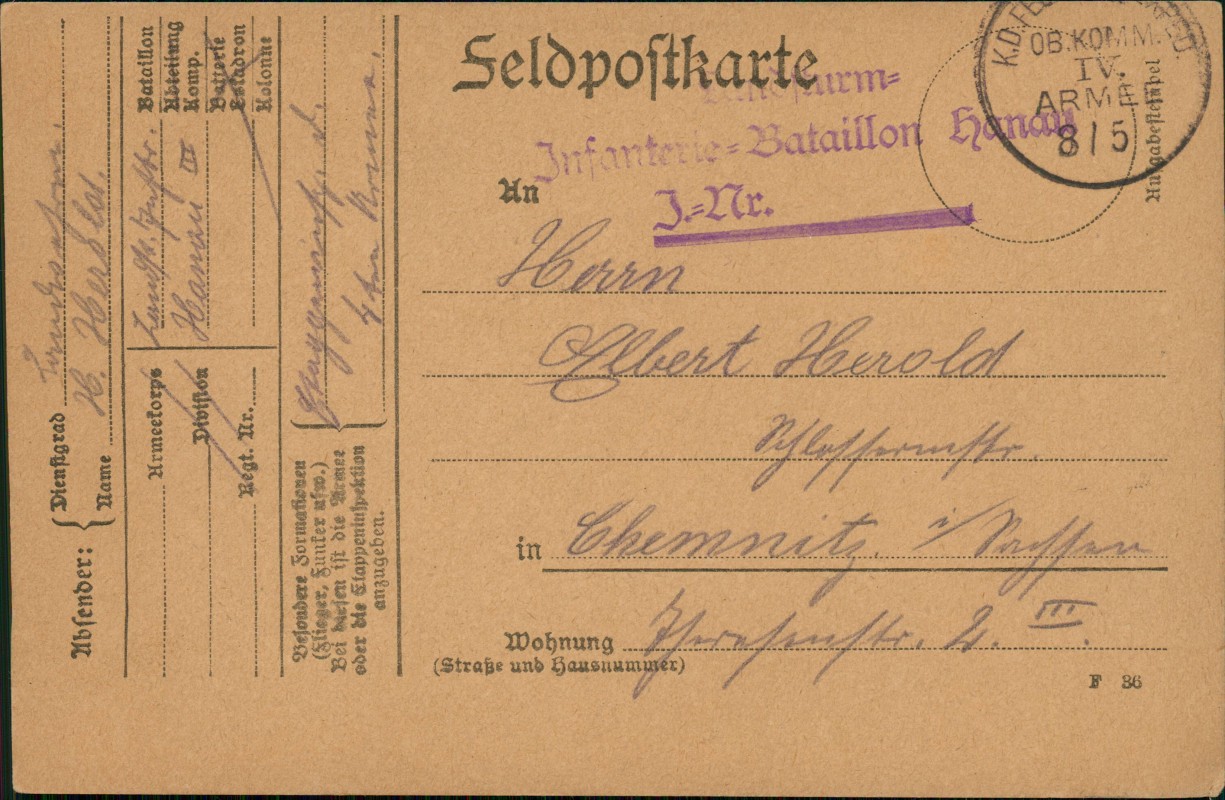 Feldpostkarte
K.D. FELD
OB. KOMM.
IV.
ARMEE
8/5
Ausgabestempel
Landsturm-
Infanterie-Bataillon Hanau
J.-Nr.
An
Herrn
Albert Herold
Schlossermstr.
in Chemnitz. i/ Sachsen
Wohnung Theresenstr. 2. III.
(Straße und Hausnummer)
F 36
Absender:
Dienstgrad
Name H. Herold.
Bataillon
Abteilung
Komp.
Batterie
Eskadron
Kolonne
Landst. Inftr.
Hanau III
Armeekorps
Division
Regt. Nr.
Etappeninsp. d.
4ten Armee.
Besondere Formationen
(Flieger, Funker usw.)
Bei diesen ist die Armee
oder die Etappeninspektion
anzugeben.